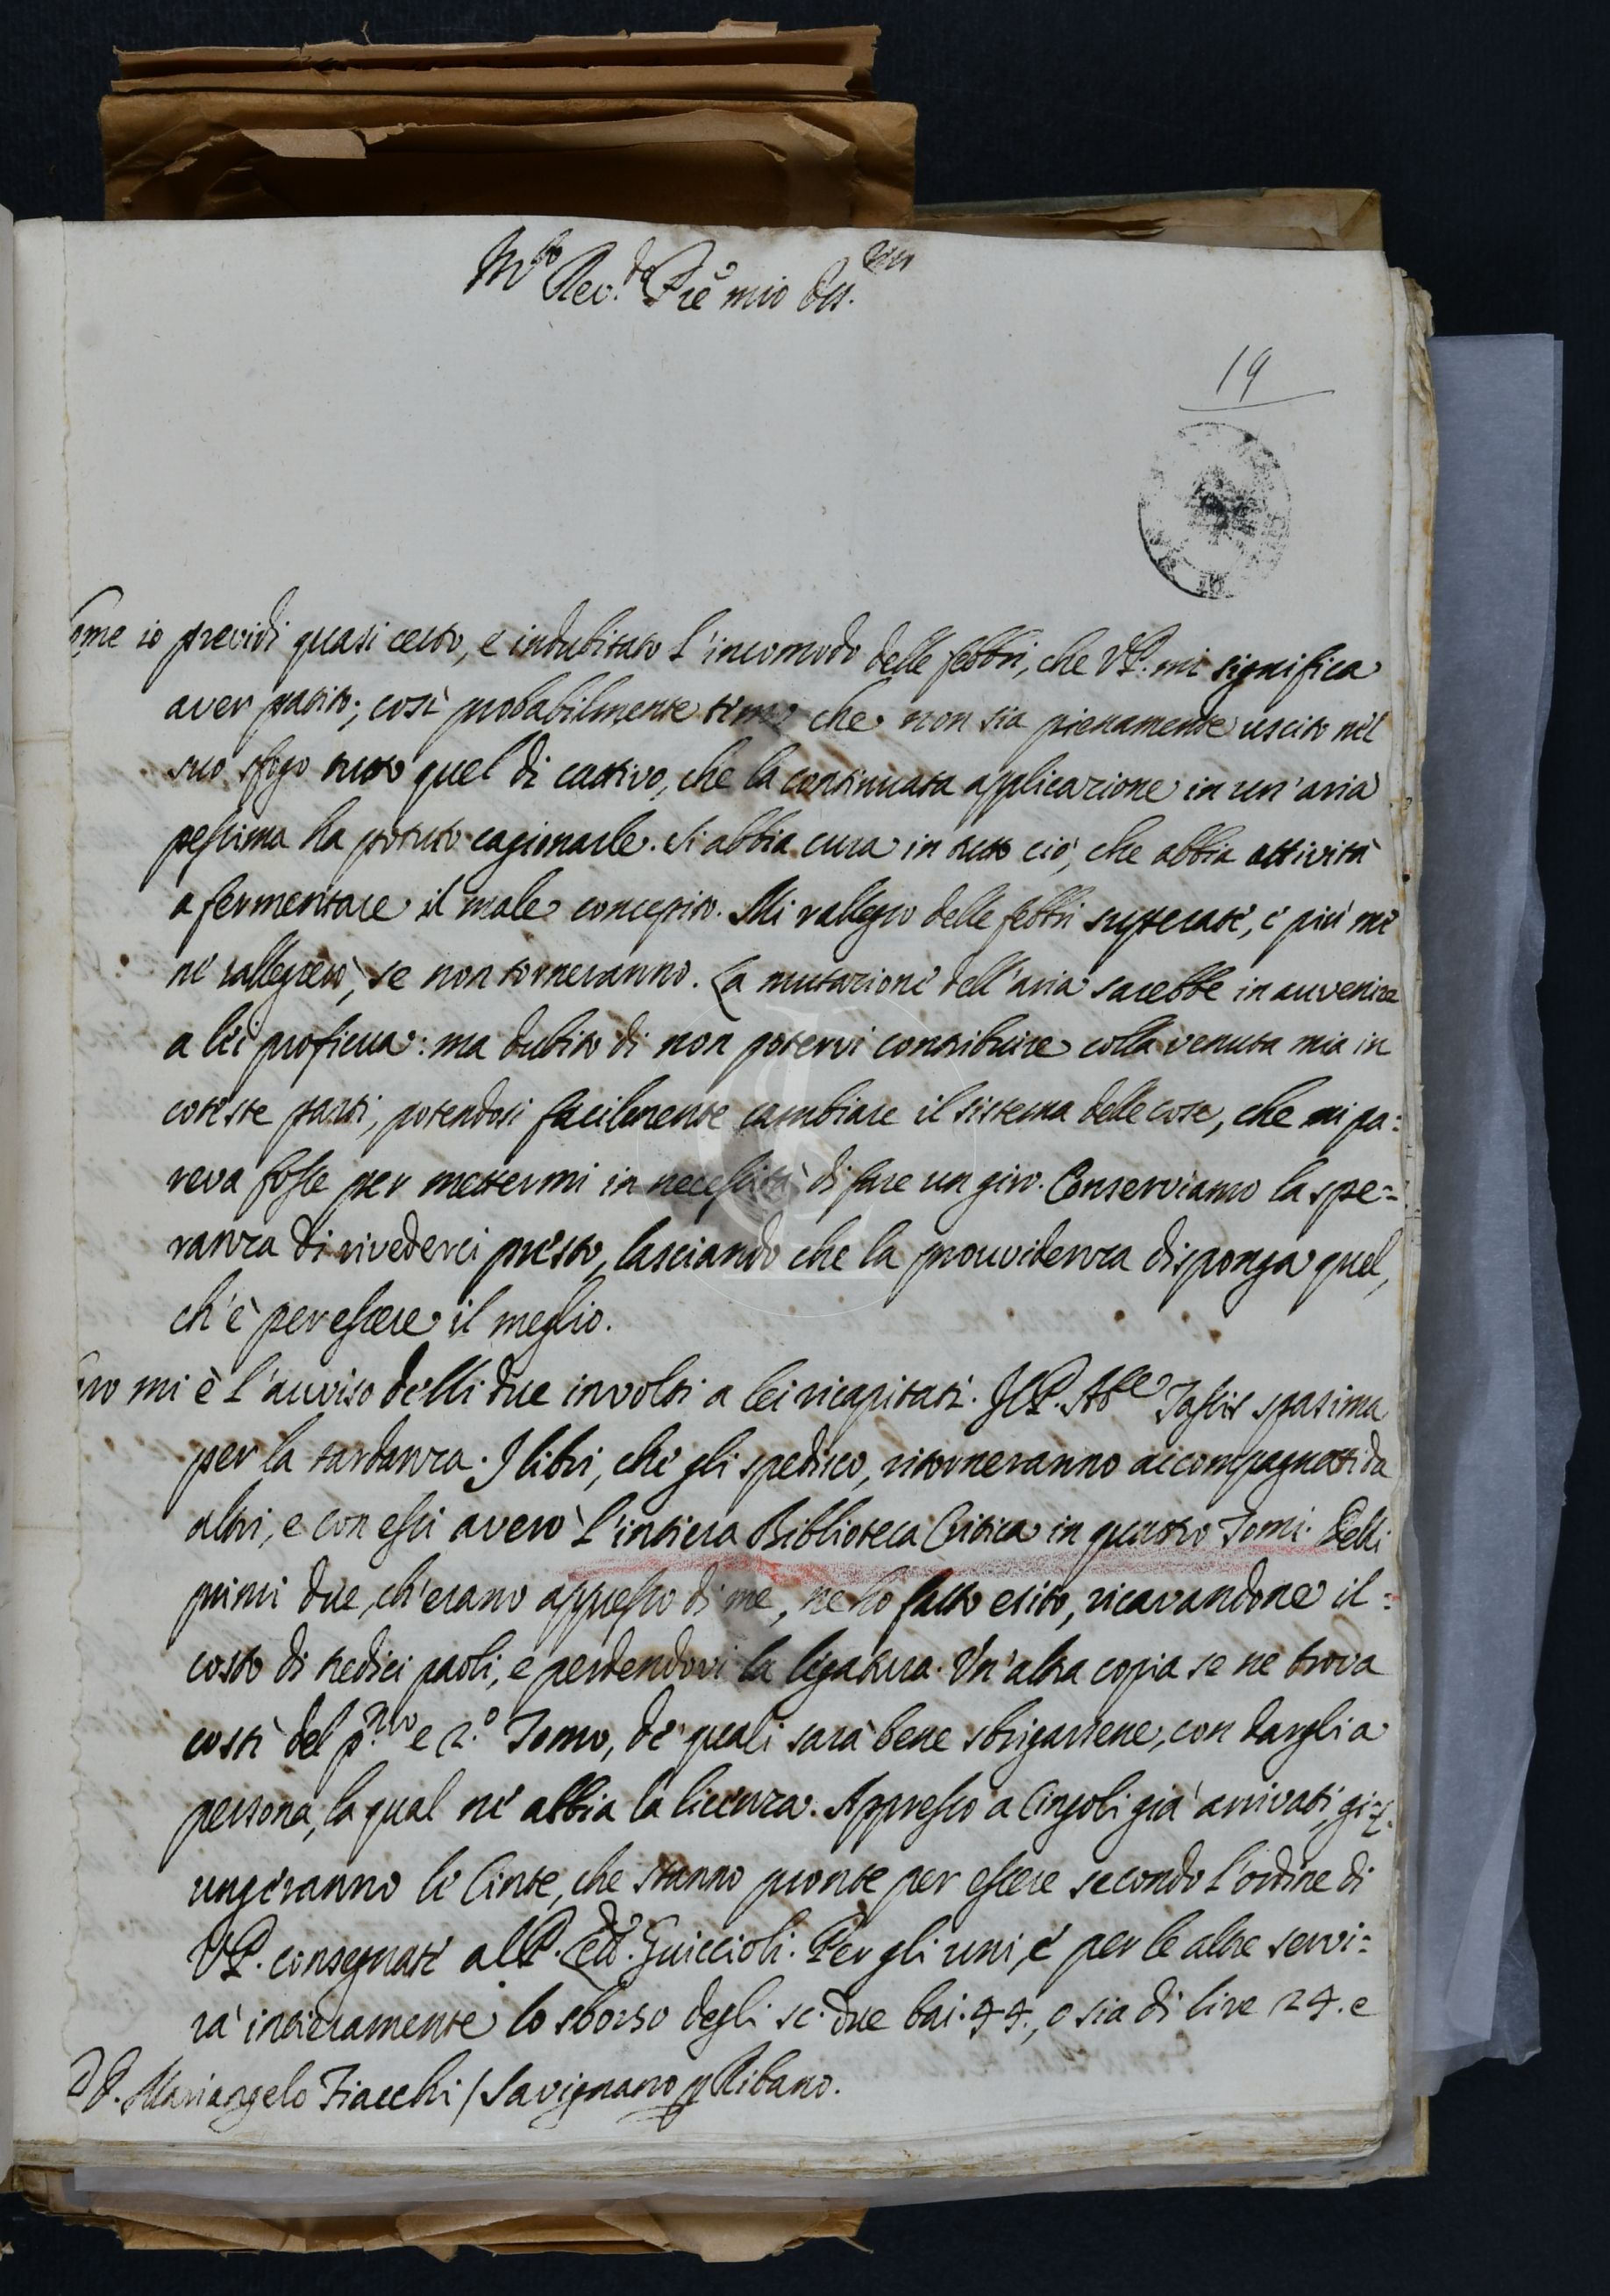 M.to Rev.do P.re mio oss.mo
19
Come io previdi quasi certo, e indubitato l'incomodo delle febbri, che V.P. mi significa
aver patito; così probabilmente temo che non sia pienamente uscito nel
suo sfogo tutto quel di cattivo, che la continuata applicazione in un'aria
pessima ha potuto cagionarle. Si abbia cura in tutto ciò, che abbia attività
a fermentare il male concepito. Mi rallegro delle febbri superate, e più me
ne rallegrerò, se non torneranno. La mutazione dell'aria sarebbe in avvenire
a lei proficua: ma dubito di non potervi contribuire colla venuta mia in
coteste parti, potendosi facilmente cambiare il sistema delle cose, che mi pa:
reva fosse per mettermi in necessità di fare un giro. Conserviamo la spe=
ranza di rivederci presto, lasciando che la provvidenza disponga quel,
ch'è per essere il meglio.
Caro mi è l'avviso delli due involti a lei ricapitati. Il P. Ab.e spasima
per la tardanza. I libri, che gli spedisco, ritorneranno accompagnati da
altri, e con essi averò l'intiera Biblioteca Critica in quattro Tomi. Delli
primi due, ch'erano appresso di me, ne ho fatto esito, ricavandone il =
costo di tredici paoli, e perdendovi la legatura. Un'altra copia se ne trova
costì del p.mo e 2.o Tomo, de' quali sarà bene sbrigarsene, con dargli a
persona, la qual ne abbia la licenza. Appresso a Cingoli già arrivati, gi=
ungeranno le Cinte, che stanno pronte per essere secondo l'ordine di
V.P. consegnate al P. Guiccioli. Per gli uni, e per le altre servi=
rà intieramente lo sborso degli sc. due bai. 44., o sia di lire 24. e
P. Mariangelo Fiacchi / Savignano Ribano.